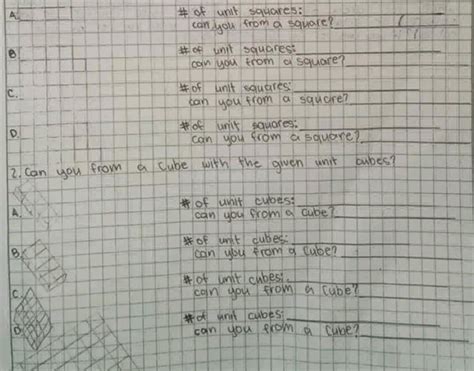 A. # of unit squares:
can you from a square?
B # of unit squares:
can you from a square?
C. # of unit squares:
can you from a square?
D. # of unit squares:
can you from a square?
2. Can you from a Cube with the given unit cubes?
A. # of unit cubes:
can you from a cube?
B. # of unit cubes:
can you from a cube?
C # of unit cubes:
can you from a cube?
D. # of unit cubes:
can you from a cube?